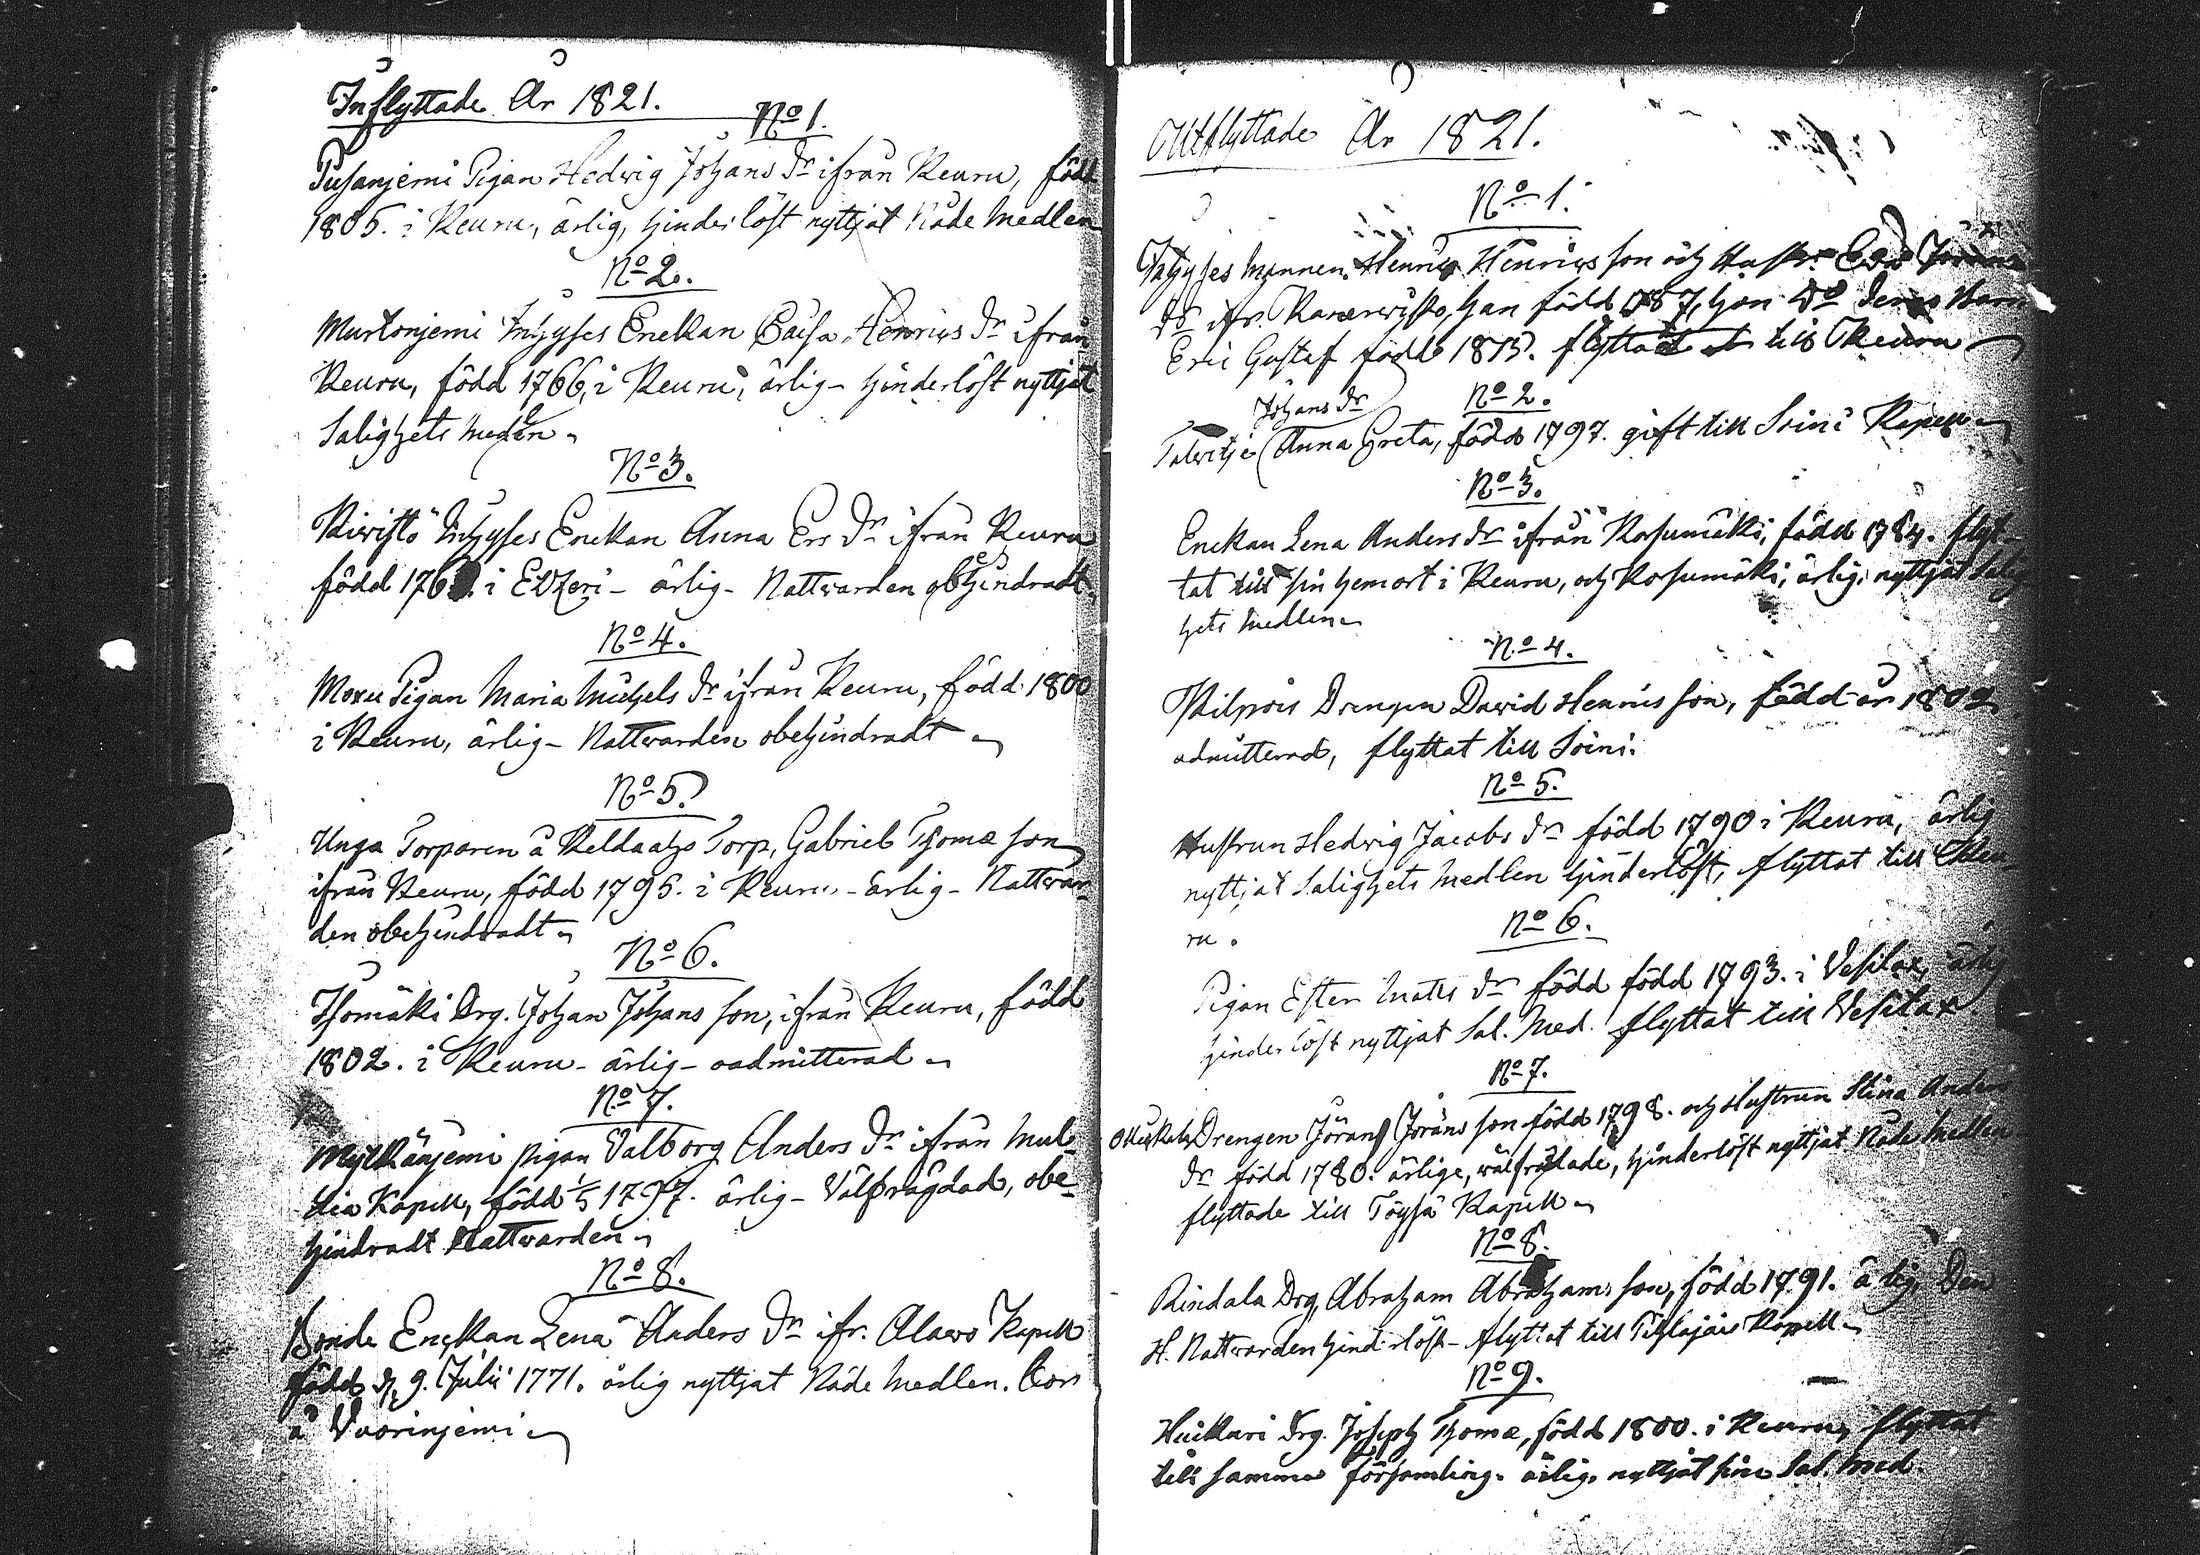 Inflyttade År 1821.
No 1.
Pusanjemi Pigan Hedvig Johans dr ifrån Keuru, född
1805. i Keuru, ärlig, hinderlöst nyttjat Nåde Medlen
No 2.
Murtonjemi Inhyses Enckan Caisa Henrics dr ifrån
Keuru, född 1766, i Keuru, ärlig - hinderlöst nyttjat
Salighets medlen
No 3.
Kiwistö Inhyses Enckan Anna Ers dr ifrån Keuru
född 176 i Etzeri - ärlig - Nattvarden obehindradt
No 4.
Moxu Pigan Maria Michels dr ifrån Keuru, född 1800
i Keuru, ärlig - Nattvarden obehindradt
No 5.
Unga Torparen å Torp, Gabriel Thomæ son
ifrån Keuru, född 1795. i Keuru - ärlig - Nattvar-
den obehindradt
No 6.
Isomäki Drg. Johan Johans son, ifrån Keuru, född
1802. i Keuru - ärlig - oadmitterad
No 7.
Myllkänjemi pigan Valborg Anders dr ifrån Mul-
tia Kapell, född 1/5 1797. ärlig - Välfrägdad, obe-
hindradt Nattvarden
No 8.
Bonde Enckan Lena Anders dr ifr. Alawo Kapell
född d. 9. Julii 1771. ärlig nyttjat Nåde Medlen. bor
å Vuorinjemi
Utflyttade År 1821.
No 1.
Inhyses Mannen Henric Henrics son och Hustr. Eva Jörans
dr ifr. han född 1787, hon do deras Barn
Eric Gustaf född 1815. flyttat till Keuru
No 2.
Johans dr
Talvitje Anna Greta, född 1797. gift till Soini Kapell
No 3.
Enckan Lena Anders dr ifrån Kosumäki, född 1784. flyt-
tat till sin hemort i Keuru, och Kosumäki, ärlig, nyttjat Salig
hets Medlen
No 4.
Kilpois Drengen David Henrics son, född år 1802
admitterad, flyttat till Soini.
No 5.
Hustrun Hedvig Jacobs dr född 1790 i Keuru, ärlig
nyttjat Salighets Medlen hinderlöst, flyttat till Keu
ru.
No 6.
Pigan Ester Matts dr född född 1793. i Vesilax, ärlig
hinderlöst nyttjat Sal. Med. flyttat till Vesilax.
No 7.
Drengen Jöran Jörans son född 1798. och Hustrun Stina Anders
dr född 1780. ärlige, välfrägdade, hinderlöst nyttjat Nåde Medlen
flyttade till Töysä Kapell
No 8.
Rindala Drg. Abraham Abrahams son, född 1791. ärlig, Den
H. Nattvarden hinderlöst - flyttat till Pihlajais Kapell
No 9.
Huikari Drg. Joseph Thomæ, född 1800. i Keuru, flyttat
till samma församling. ärlig, nyttjat sine Sal. Med.